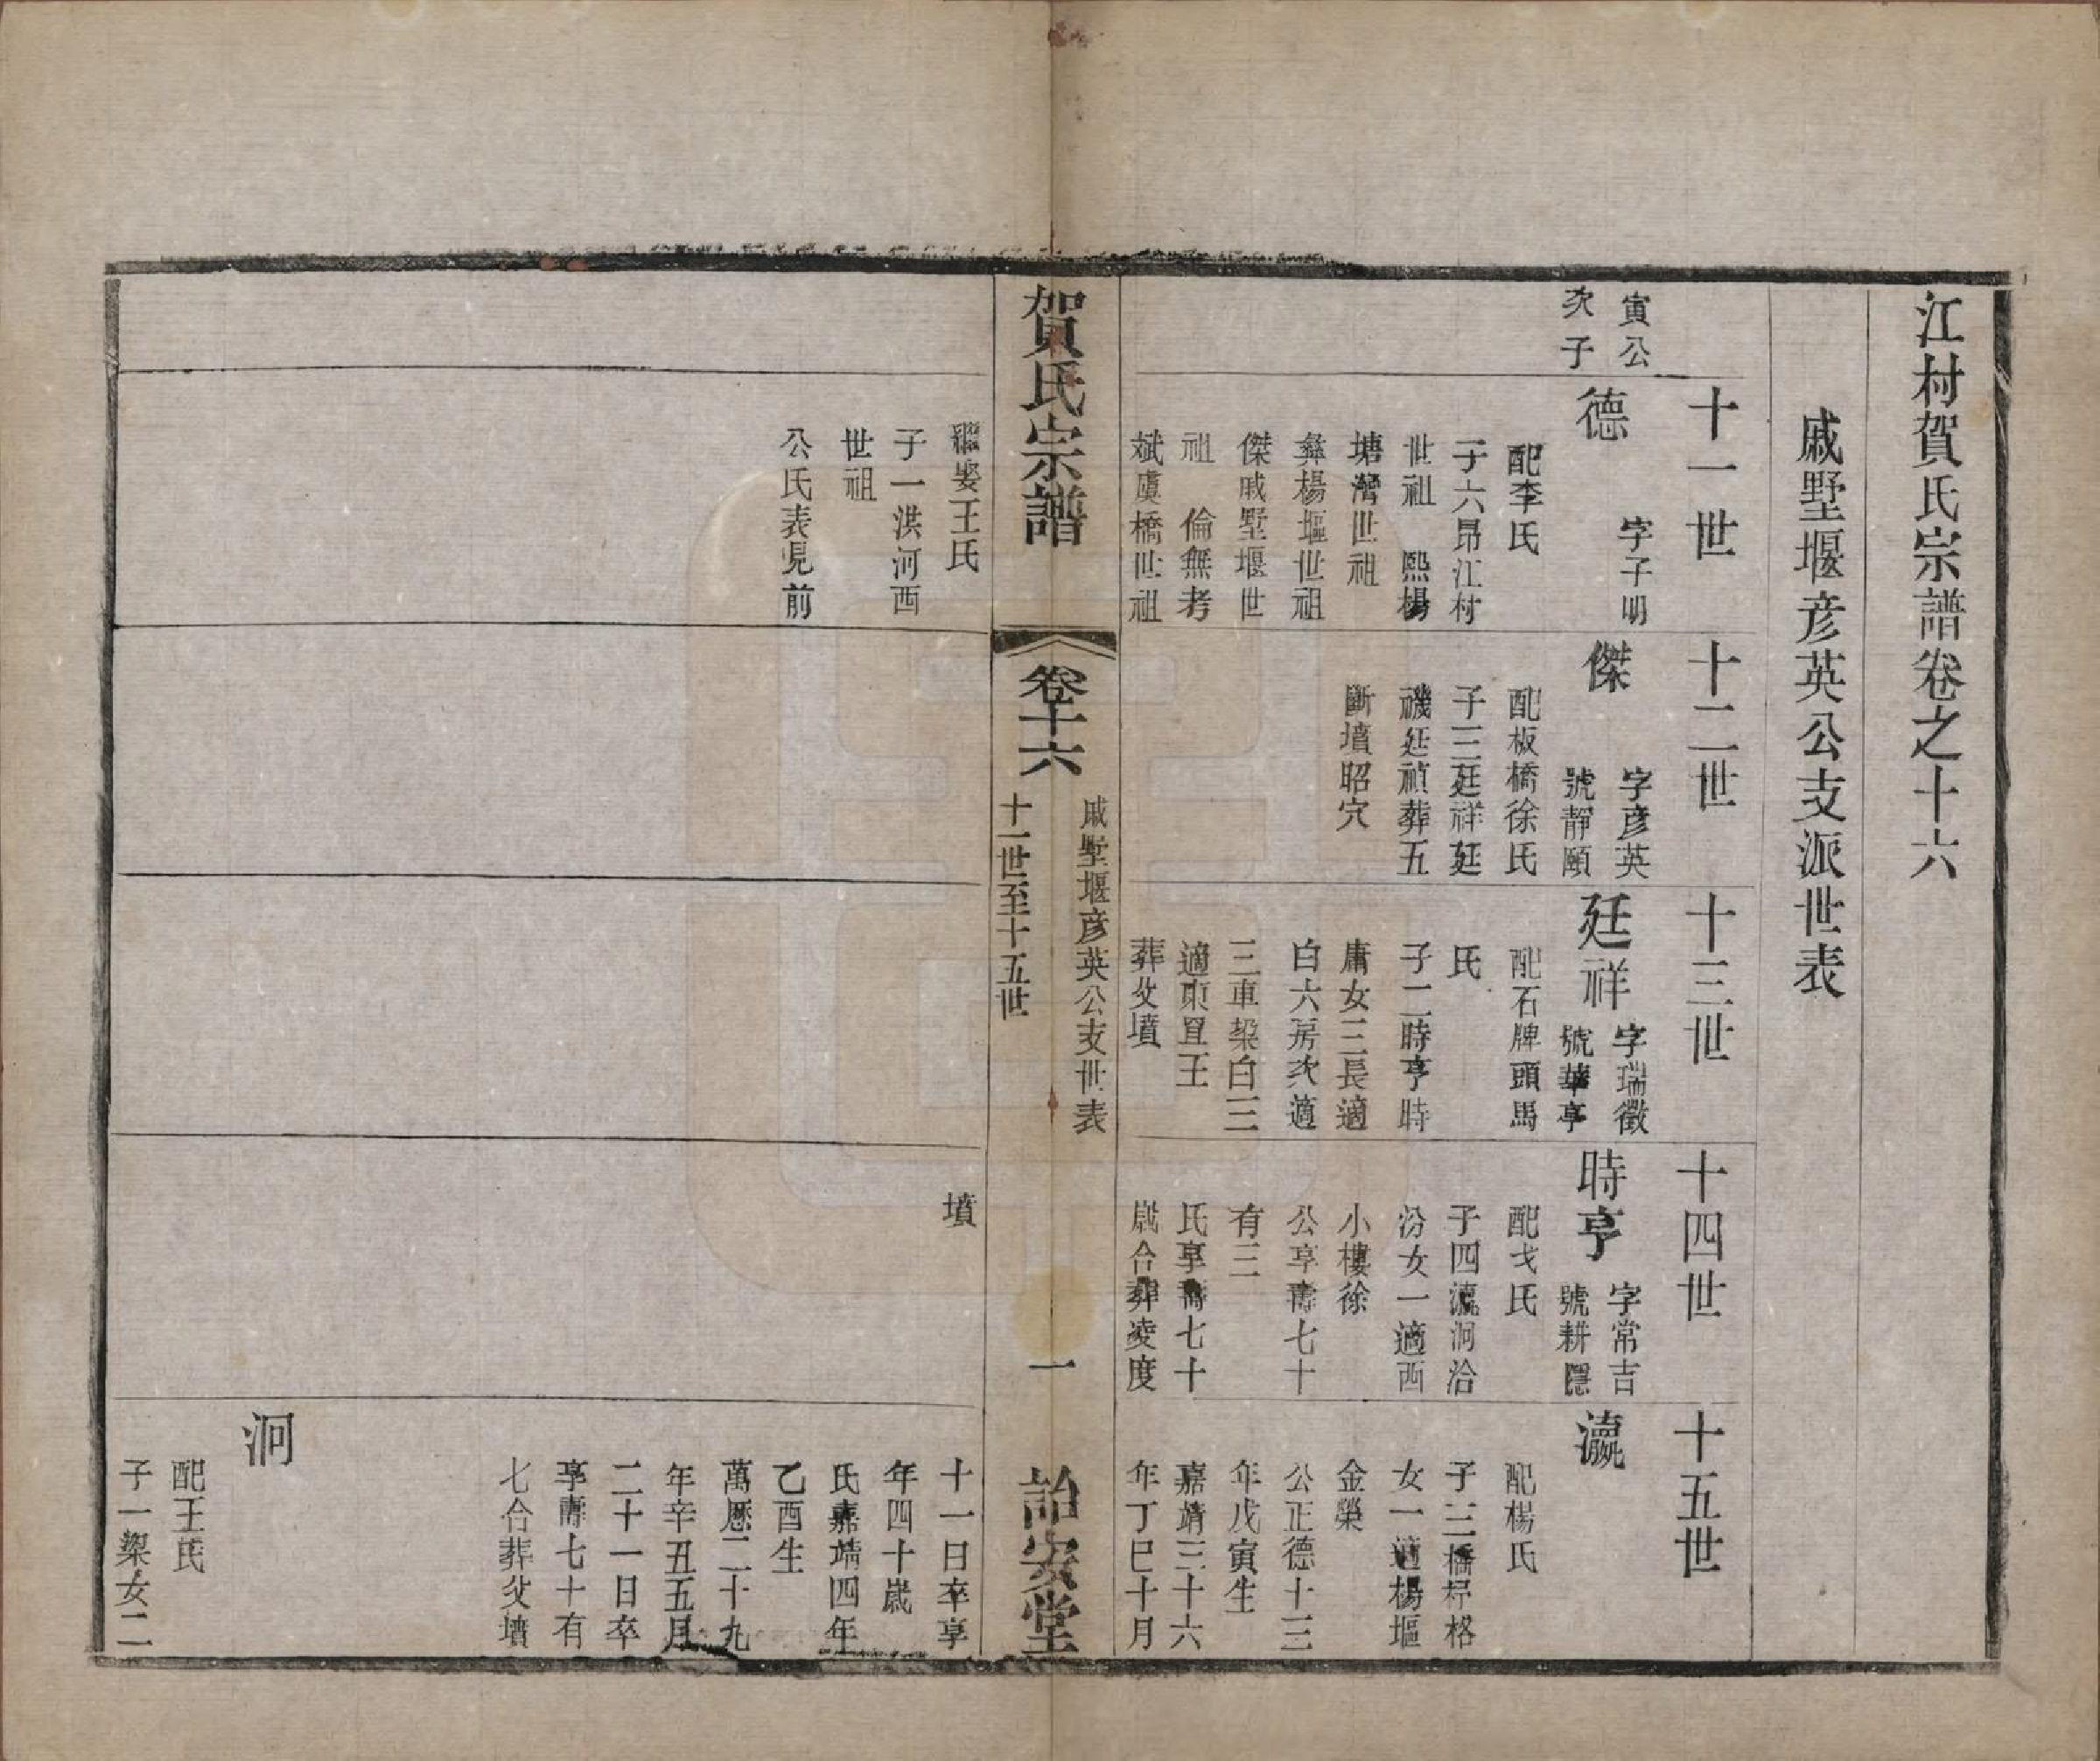 江村賀氏宗譜卷之十六
戚墅堰彦英公支派世表
十一世
寅公
次子
德
字子明
配李氏
子六昻江村
世祖 熙楊
塘灣世祖
彝楊堰世祖
傑戚墅堰世
祖 倫無考
斌虞橋世祖
繼娶王氏
子一洪河西
世祖
公氏表見前
十二世
傑
字彥英
號靜頤
配板橋徐氏
子三廷祥廷
禨廷禎葬五
斷墳昭穴
十三世
廷祥
字瑞徵
號華亭
配石牌頭馬
氏
子二時亨時
庸女三長適
白六房次適
三車梁白三
適東直王
葬父墳
十四世
時亨
字常吉
號耕隱
配戈氏
子四瀛泂洽
汾女一適西
小樓徐
公享壽七十
有三
氏享壽七十
歲合葬凌度
墳
十五世
瀛
配楊氏
子三橋桴格
女一適楊堰
金榮
公正德十三
年戊寅生
嘉靖三十六
年丁巳十月
十一日卒享
年四十歲
氏嘉靖四年
乙酉生
萬厯二十九
年辛丑五月
二十一日卒
享壽七十有
七合葬父墳
泂
配王氏
子一梁女二
賀氏宗譜
卷十六
戚墅堰彦英公支世表
十一世至十五世
一
詒安堂